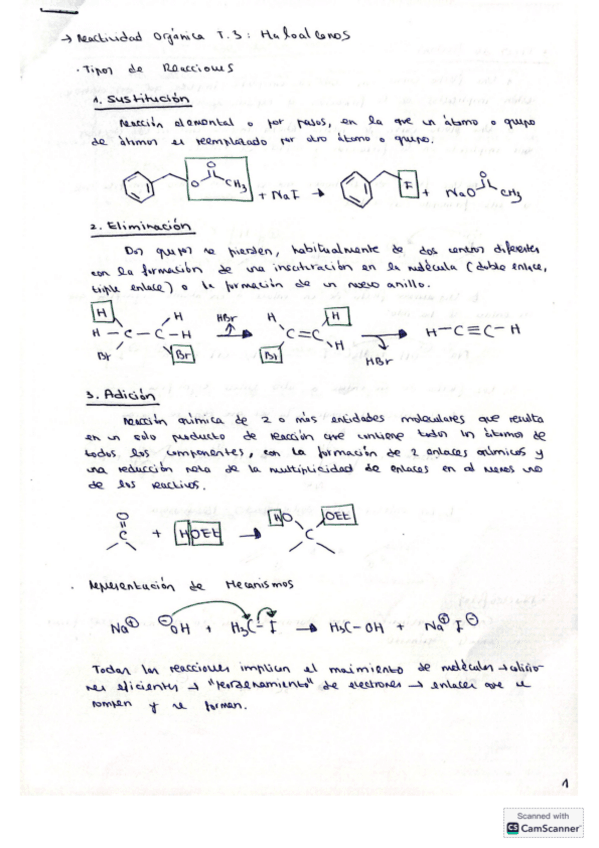 → Reactividad Orgánica T.3: Haloalcanos
· Tipos de Reacciones
1. Sustitución
Reacción elemental o por pasos, en la que un átomo o grupo
de átomos es reemplazado por otro átomo o grupo.
O O CH3 + NaI → I + NaO O CH3
2. Eliminación
Dos grupos se pierden, habitualmente de dos centros diferentes
con la formación de una insaturación en la molécula (doble enlace,
triple enlace) o la formación de un nuevo anillo.
H H HBr H H
H-C-C-H → C=C → H-C≡C-H
Br Br Br H HBr
3. Adición
Reacción química de 2 o más entidades moleculares que resulta
en un solo producto de reacción que contiene todos los átomos de
todos los componentes, con la formación de 2 enlaces químicos y
una reducción neta de la multiplicidad de enlaces en al menos uno
de los reactivos.
O HO OEt
C + HOEt → C
· Representación de Mecanismos
Na⊕ ⊖OH + H3C-I → H3C-OH + Na⊕ I⊖
Todas las reacciones implican el movimiento de moléculas → colisio-
nes eficientes → "reordenamiento" de electrones → enlaces que se
rompen y se forman.
1
Scanned with
CS CamScanner